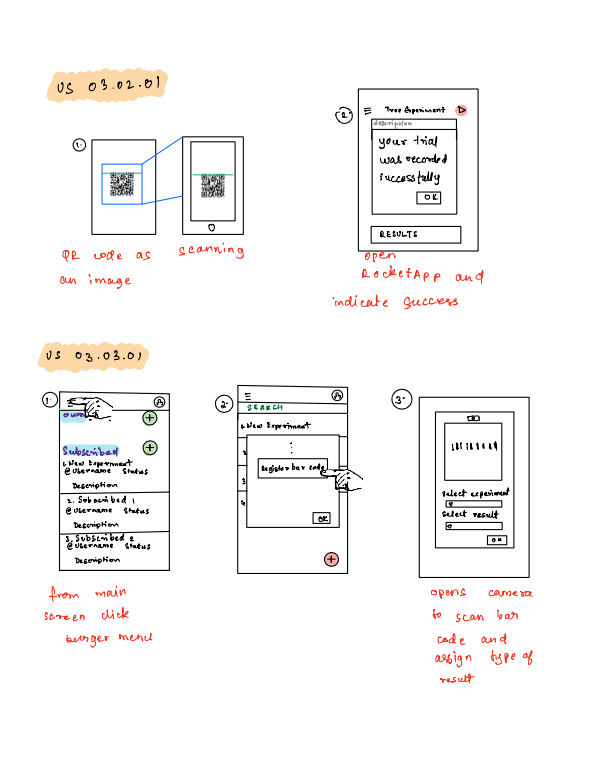 US 03.02.01
1.
QR code as
an image
scanning
2.
Tree Experiment
description
your trial
was recorded
successfully
OK
RESULTS
open
RocketApp and
indicate success
US 03.03.01
1.
own
Subscribed
1. New Experiment
@Username Status
Description
2. Subscribed 1
@Username Status
Description
3. Subscribed 2
@Username Status
Description
from main
screen click
burger menu
2.
SEARCH
1. New Experiment
2
Register bar code
3
4
OK
3.
Select experiment
Select result
OK
opens camera
to scan bar
code and
assign type of
result